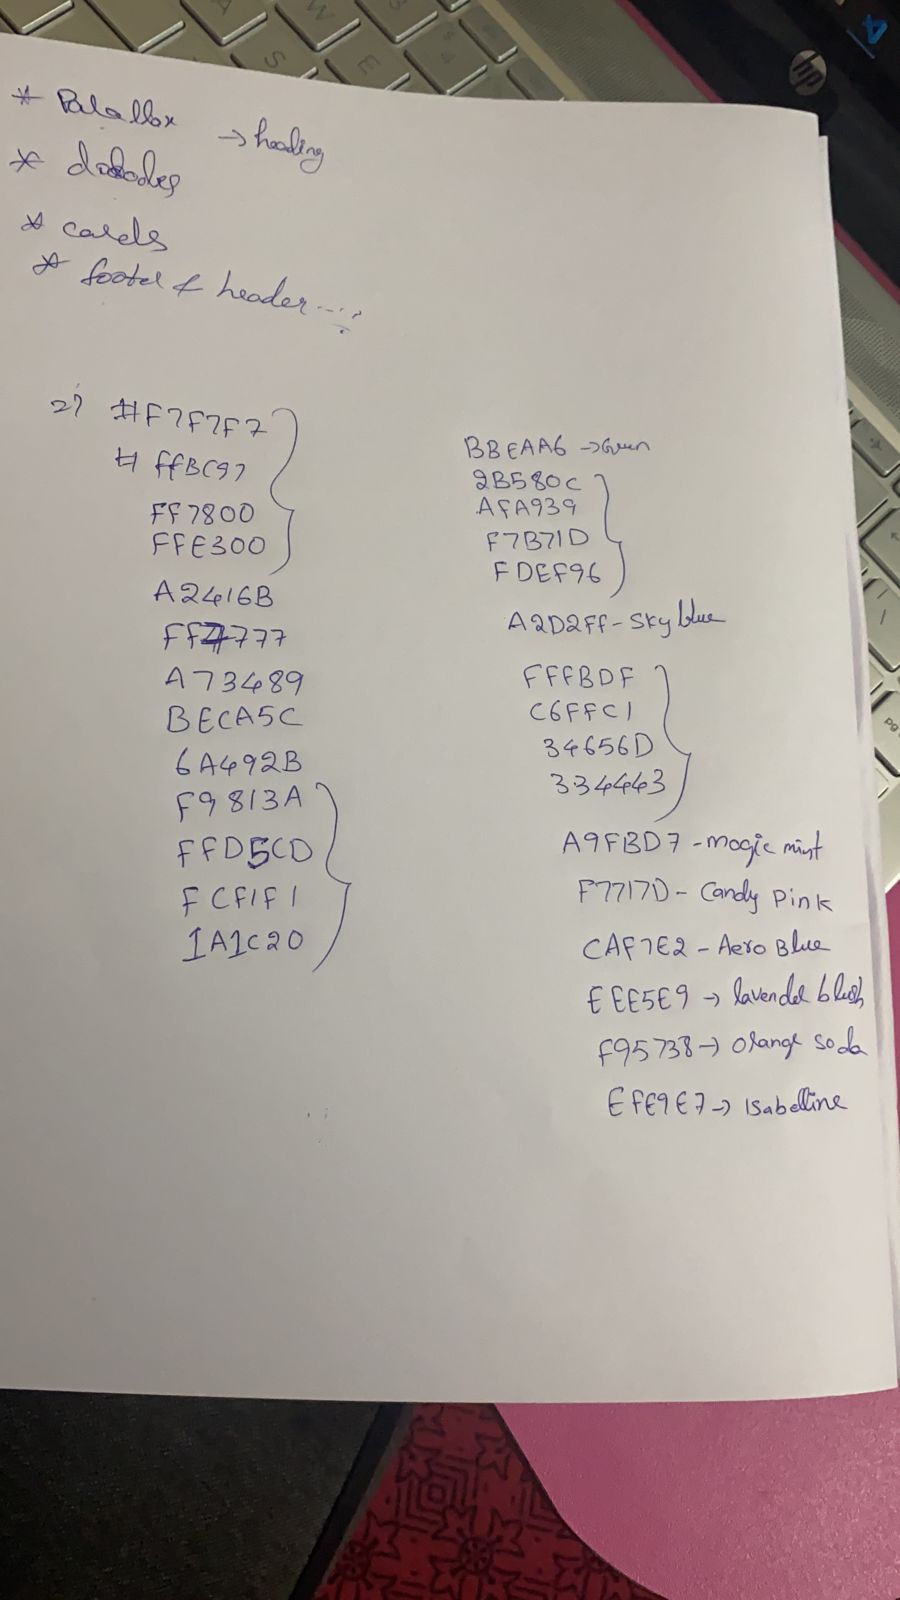 * Parallax → heading
*
* cards
* footer & header.....
2) #F7F7F7
# ffBC97
FF7800
FFE300
A2416B
FF7777
A73489
BECA5C
6A492B
F9813A
FFD5CD
FCF1F1
1A1C20
BBEAA6 → Green
2B580C
AFA939
F7B71D
FDEF96
A2D2FF - Sky blue
FFFBDF
C6FFC1
34656D
334443
A9FBD7 - magic mint
F7717D - Candy Pink
CAF7E2 - Aero Blue
EEE5E9 → lavender blush
F95738 → Orange soda
EFE9E7 → Isabelline
hp
A
W
3
S
E
$
4